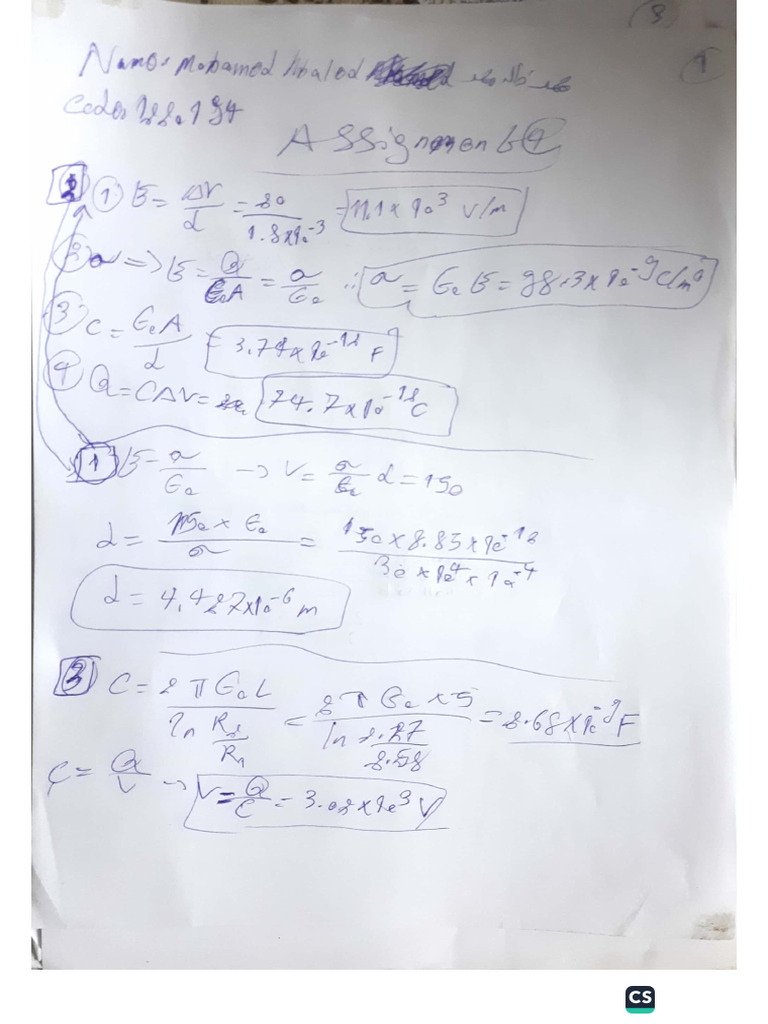 8
1
Name: Mohamed Khaled محمد خالد
Assignment 1
2
① E = ΔV/d = 20/1.8×10⁻³ = 11.1×10³ V/m
② σ => E = Q/ϵ₀A = σ/ϵ₀ ∴ σ = ϵ₀ E = 98.3×10⁻⁹ C/m²
③ C = ϵ₀A/d = 3.74×10⁻¹² F
④ Q = CΔV = 74.7×10⁻¹² C
1 E = σ/ϵ₀ → V = σ/ϵ₀ d = 150
d = 150 × ϵ₀/σ = 150 × 8.85×10⁻¹²/30×10⁴×10⁻⁴
d = 4.427×10⁻⁶ m
3 C = 2πϵ₀L/ln R₂/R₁ = 2πϵ₀×5/ln = 2.68×10⁻⁹ F
C = Q/V → V = Q/C = 3.02×10³ V
CS